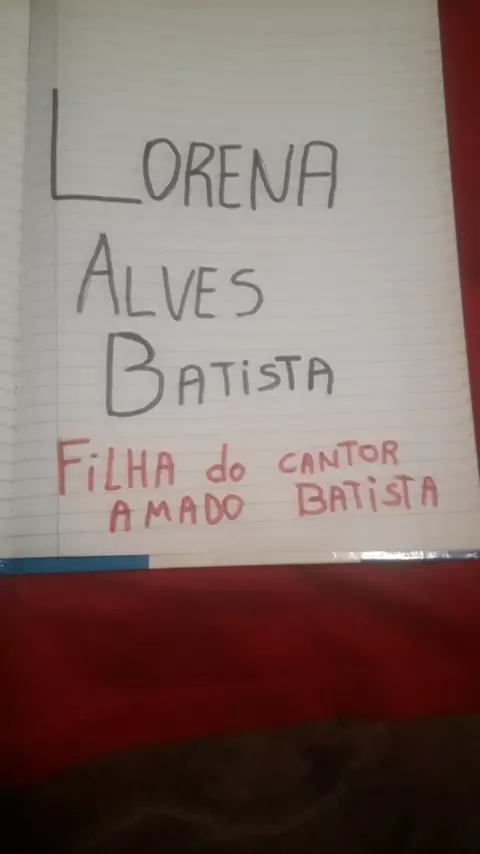 LORENA
ALVES
BATiSTA
FiLHA do CANTOR
AMADO BATiSTA